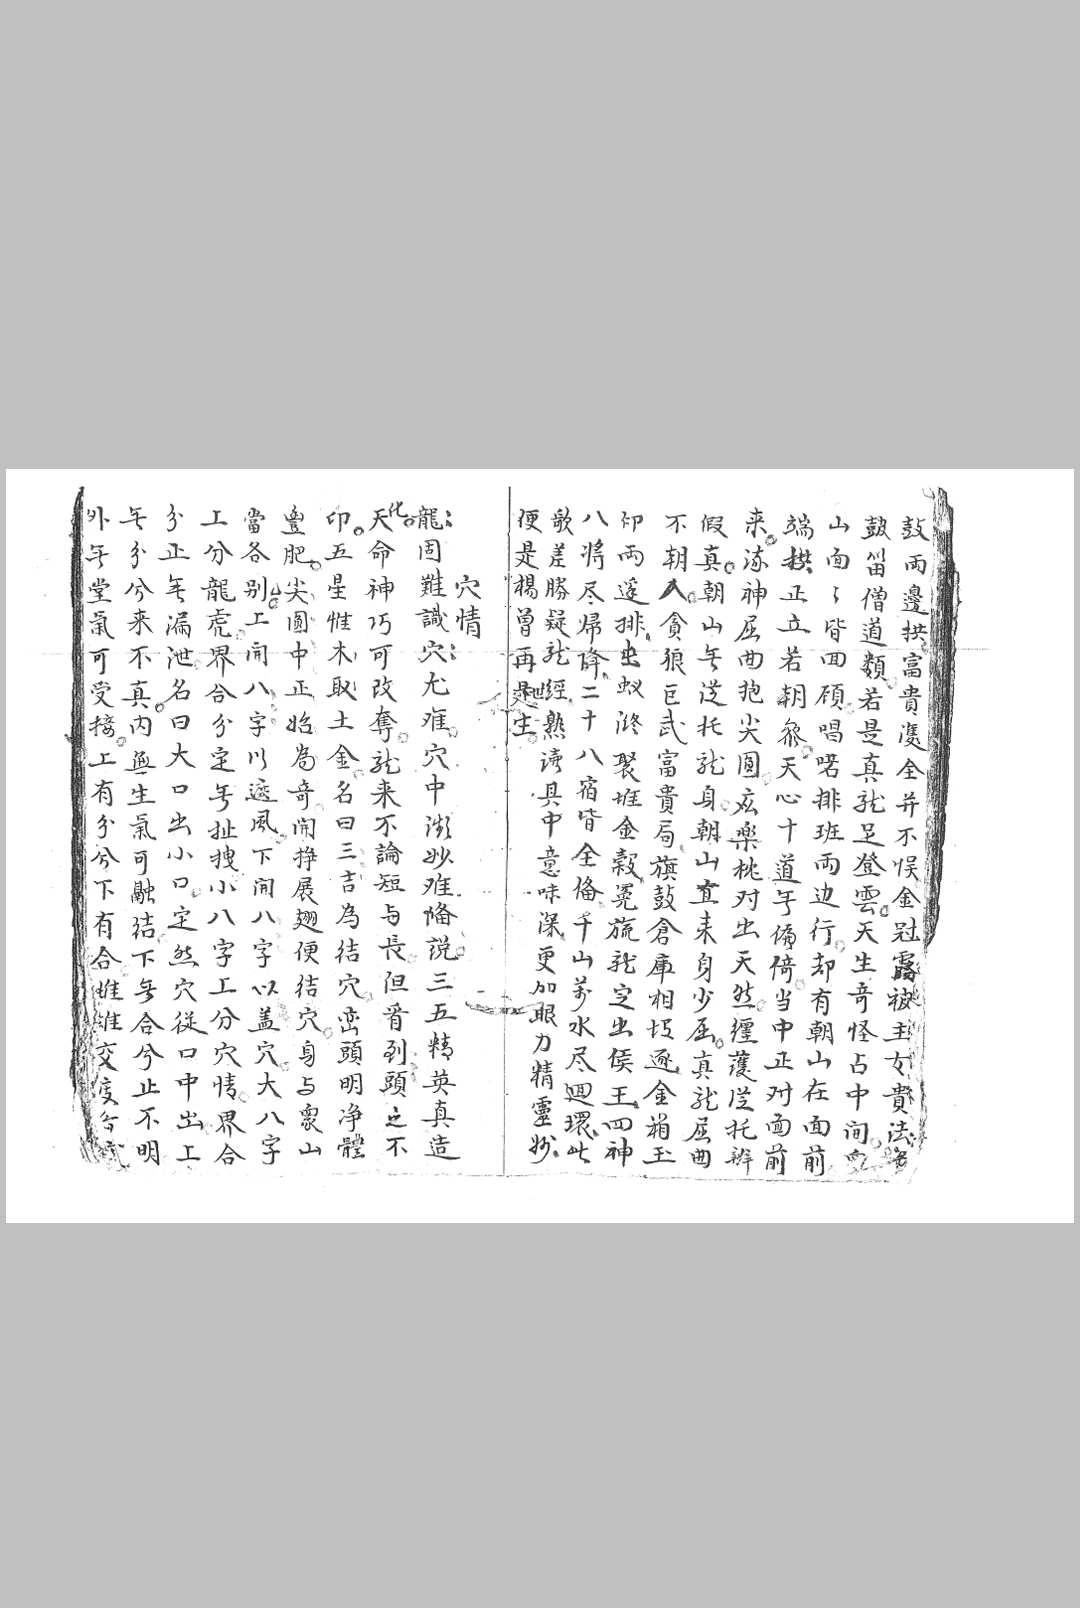 鼓兩邊拱富貴雙全并不悮金冠霞被主女貴法
鼓笛僧道類若是真龍足登雲天生奇怪占中间
山面々皆回頋唱喏排班両边行却有朝山在面前
端拱正立若朝飛天心十道无偏倚当中正对面前
来流神屈曲抱尖圓玄樂桃对出天然纒護送托辨
假真朝山无送托龍身朝山直来身少屈真龍屈曲
不朝人貪狼巨武富貴局旗鼓倉庫相垓逐金箱玉
印両邊排出蚁泺聚堆金榖冕旒龍定出侯王四神
八將尽帰降二十八宿皆全俻千山萬水尽迴環此
歌差勝疑龍經熟讀具中意味深更加眼力精靈妙
便是楊曾再出生
穴情
龍固難識穴尤难穴中微妙难俻説三五精英真造
化天命神巧可改奪龍来不論短与長但看到頭之不
印五星惟木取土金名曰三吉為结穴峦頭明净體
豊肥尖圓中正始為奇開挣展翅便结穴身与衆山
當各别上開八字以遮風下開八字以盖穴大八字
上分龍虎界合分定无扯拽小八字上分穴情界合
分正无漏泄名曰大口出小口定然穴從口中出上
无分兮来不真内無生氣可融结下无合兮止不明
外无堂氣可受接上有分兮下有合雌雄交度